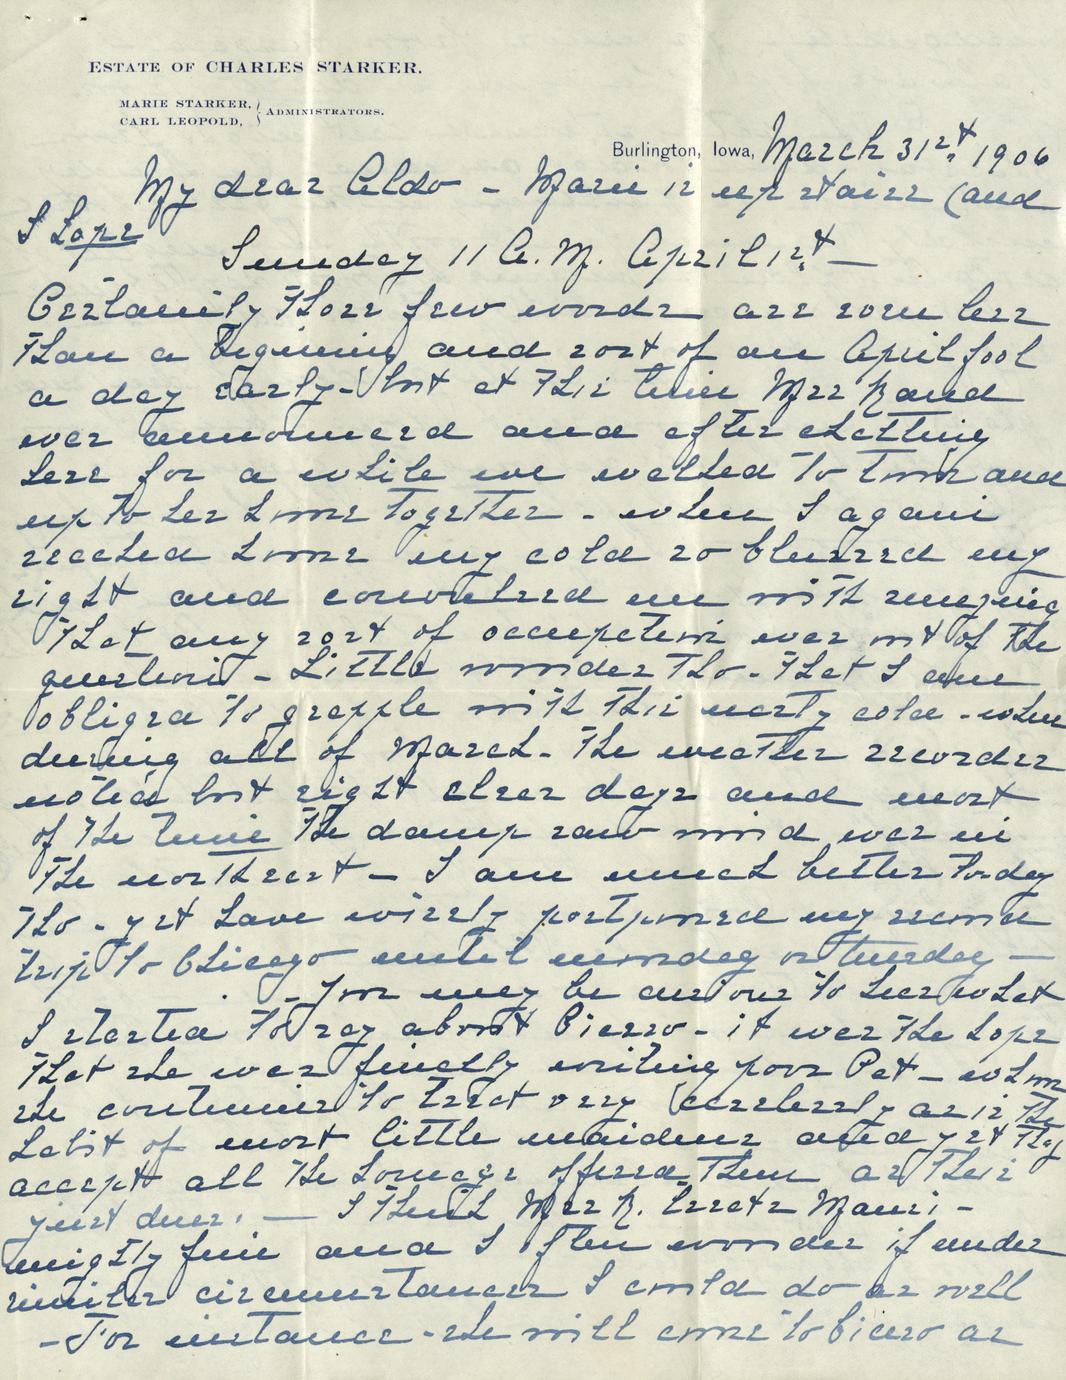 ESTATE OF CHARLES STARKER.
MARIE STARKER,
CARL LEOPOLD, } ADMINISTRATORS.
Burlington, Iowa, March 31st, 1906
My dear Aldo - Marie is up stairs (and
I hope
Sunday 11 A.M. April 1st, -
Certainly those few words are even less
than a begining and sort of an April fool
a day early - but at this time Mrs Rand
was announced and after chatting
here for a while we walked to town and
up to her home together - when I again
reached home my cold so blurred my
sight and convulsed me with sneezing
that any sort of occupation was out of the
question - Little wonder tho - that I am
obliged to grapple with this nasty cold - when
during all of March - the weather recorder
noticed but eight clear days and most
of the time the damp raw wind was in
the northeast - I am much better to-day
tho - yet have wisely postponed my second
trip to Chicago until monday or tuesday -
- You may be curious to hear what
I started to say about Cicero - it was the hope
that she was finally writing poor Pat - whom
she continues to treat very carelessly as is the
habit of most little maidens and yet they
accept all the homage offered them as their
just dues. - I think Mrs R. treats Marie -
mighty fine and I often wonder if under
similar circumstances I could do as well
- For instance - she will come to Cicero as